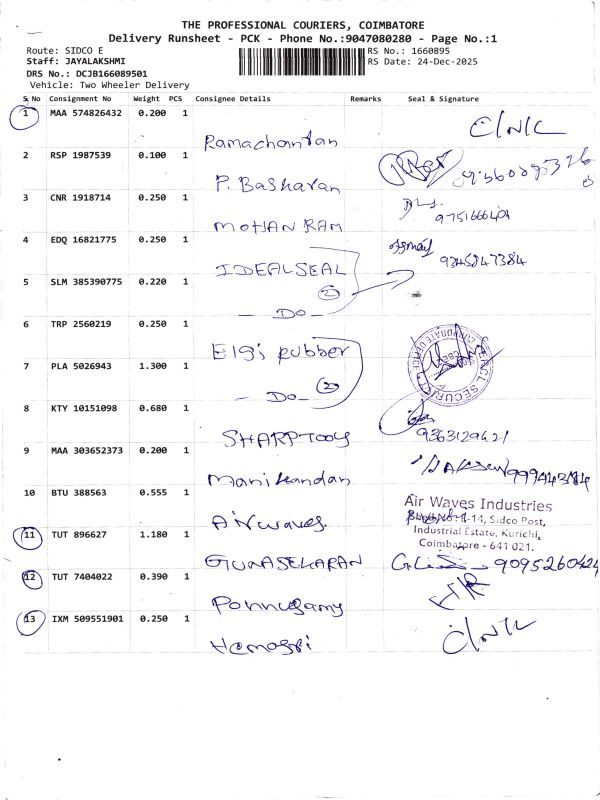 THE PROFESSIONAL COURIERS, COIMBATORE
Delivery Runsheet - PCK - Phone No.:9047080280 - Page No.:1
Route: SIDCO E
RS No.: 1660895
Staff: JAYALAKSHMI
RS Date: 24-Dec-2025
DRS No.: DCJB166089501
Vehicle: Two Wheeler Delivery
S No Consignment No Weight PCS Consignee Details Remarks Seal & Signature
1 MAA 574826432 0.200 1
Ramachantan
2 RSP 1987539 0.100 1
P. Baskaran
3 CNR 1918714 0.250 1
MOHAN RAM 9751666401
4 EDQ 16821775 0.250 1
IDEALSEAL 9345847384
5 SLM 385390775 0.220 1
2
— Do —
6 TRP 2560219 0.250 1
Elgi rubber
7 PLA 5026943 1.300 1
— Do — 2
CORPORATE OFFICE
8 KTY 10151098 0.680 1
SHARPTOOLS 9363129421
9 MAA 303652373 0.200 1
Manikandan
10 BTU 388563 0.555 1
Airwaves.
Air Waves Industries
B-14, Sidco Post,
Industrial Estate, Kurichi,
Coimbatore - 641 021.
11 TUT 896627 1.180 1
GUNASEKARAN 9095260424
12 TUT 7404022 0.390 1
Ponnusamy
13 IXM 509551901 0.250 1